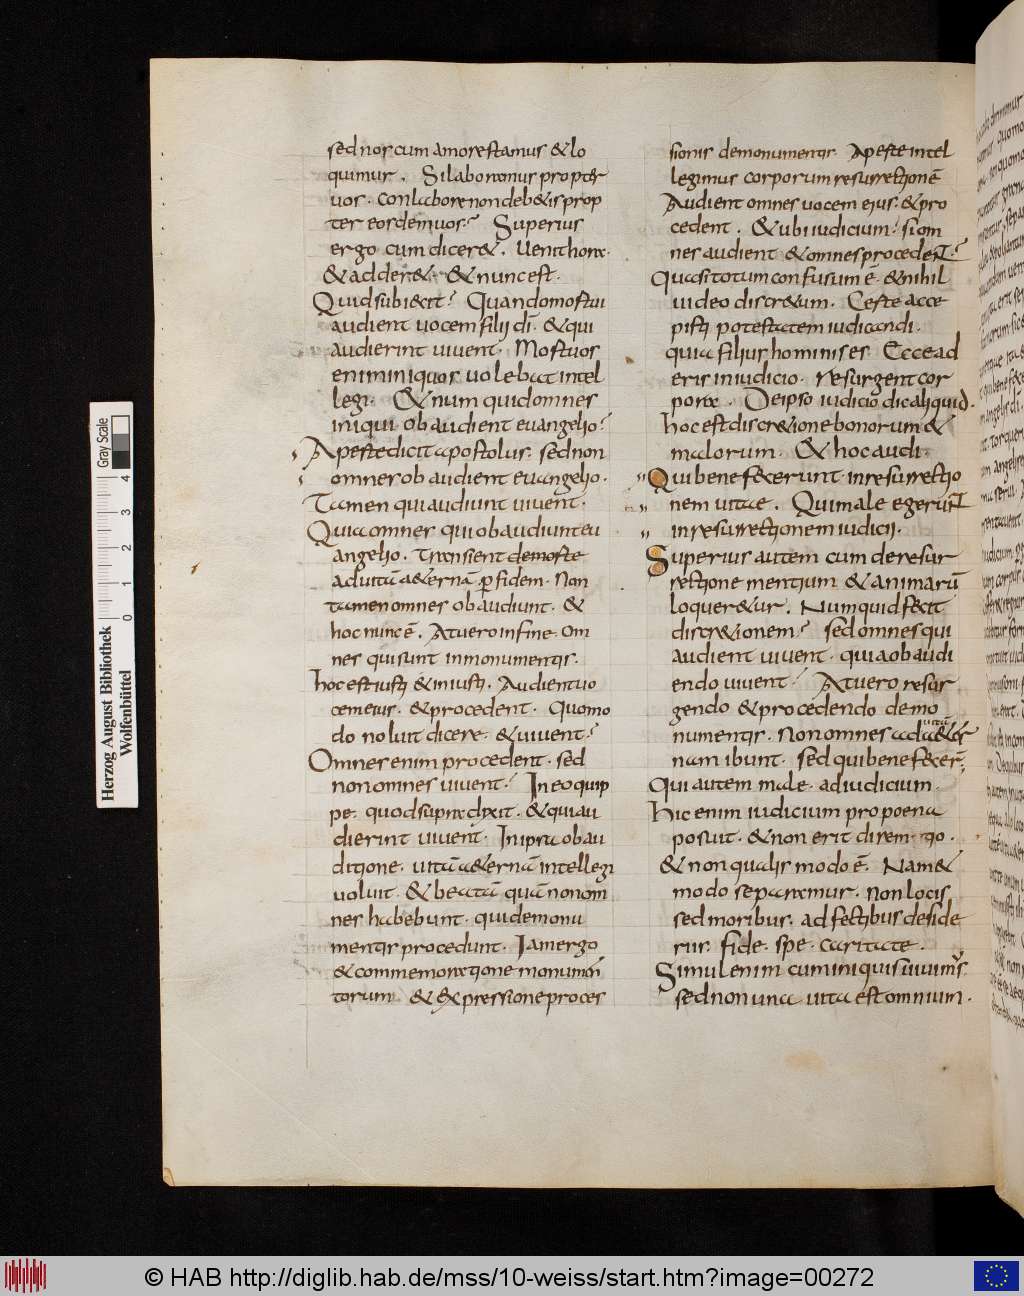 sed nos cum amore stamus & lo
quimur. Si laboramus propter
vos. conlaborenondeb&is prop
ter eosdem vos? Superius
ergo cum dicer&. Venit hora.
& adder&. & nunc est.
Quid subiecit? Quando mortui
audient vocem filii dī. & qui
audierint vivent. Mortuos
enim iniquos volebat intel
legi. & num quid omnes
iniqui obaudient evangelio?
Aperte dicit apostolus. sed non
omnes obaudient evangelio.
Tamen qui audiunt vivent.
Quia omnes qui obaudiunt eu
angelio. Transient de morte
ad vitā a&ernā p fidem. Non
tamen omnes obaudiunt. &
hoc nunc ē. At vero in fine. Om
nes qui sunt in monumentis.
hoc est iusti & iniusti. Audient vo
cem eius. & procedent. Quomo
do noluit dicere. & vivent?
Omnes enim procedent. sed
non omnes vivent? In eo quip
pe. quod supra dixit. & qui au
dierint vivent. In ipsa obau
ditione. vitā a&ernā intellegi
voluit. & beatā quā non om
nes habebunt. qui de monu
mentis procedunt. Iam ergo
& commemoratione monumen
torum. & expressione proces
sionis de monumentis. Aperte intel
legimus corporum resurrectionē
Audient omnes vocem eius. & pro
cedent. & ubi iudicium? si om
nes audient & omnes procedent?
Quasi totum confusum ē. & nihil
video discr&um. Certe acce
pisti potestatem iudicandi.
quia filius hominis es. Ecce ad
eris in iudicio. resurgent cor
pora. De ipso iudicio dic aliquid.
hoc est discr&ione bonorum &
malorum. & hoc audi.
Qui bene fecerunt. in resurrectio
nem vitae. Qui male egerunt
in resurrectionem iudicii.
Superius autem cum de resur
rectione mentium & animarū
loquer&ur. Numquid fecit
discr&ionem? sed omnes qui
audient vivent. quia obaudi
endo vivent? At vero resur
gendo & procedendo de mo
numentis. Non omnes ad vitam a&er
nam ibunt. sed qui bene fecer̄.
Qui autem male. ad iudicium.
Hic enim iudicium pro poena
posuit. & non erit direm tio.
& non qualis modo ē. Nam &
modo separamur. non locis
sed moribus. adfectibus deside
riis. fide. spe. caritate.
Simul enim cum iniquis vivimus.
sed non una vita est omnium.
Herzog August Bibliothek
Wolfenbüttel
0 1 2 3 4
Gray Scale
© HAB http://diglib.hab.de/mss/10-weiss/start.htm?image=00272